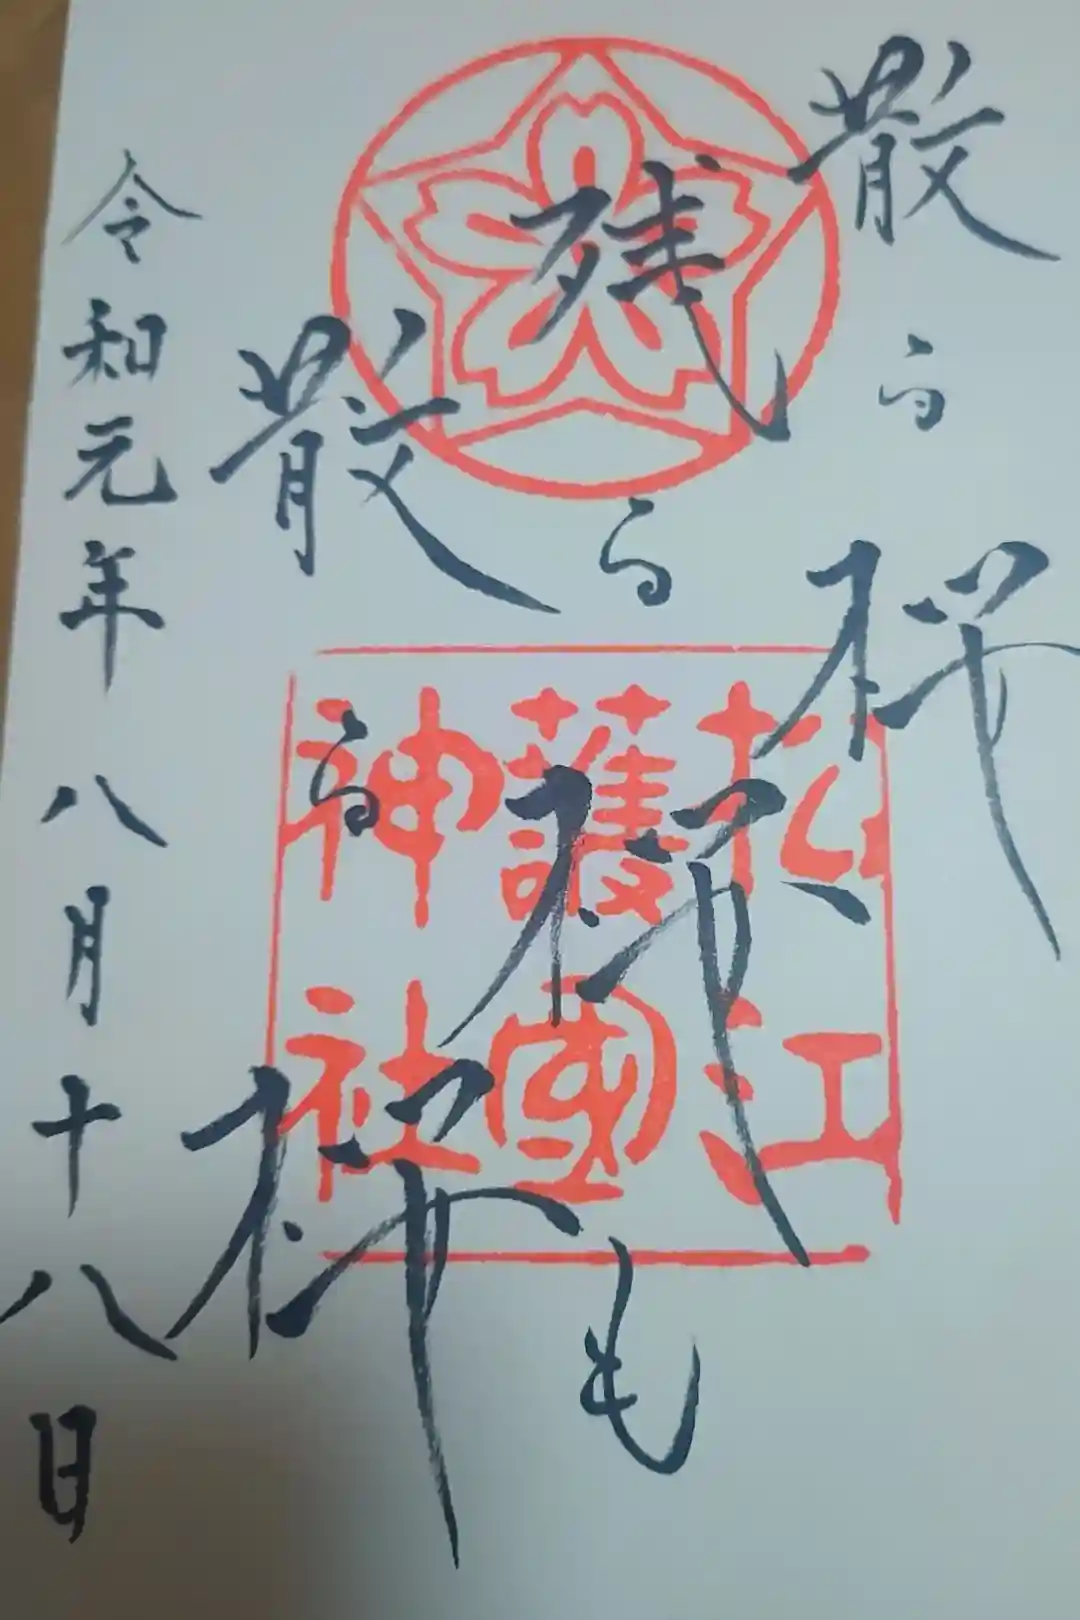 散る桜
残る桜も
散る桜
令和元年八月十八日
松江
護國
神社